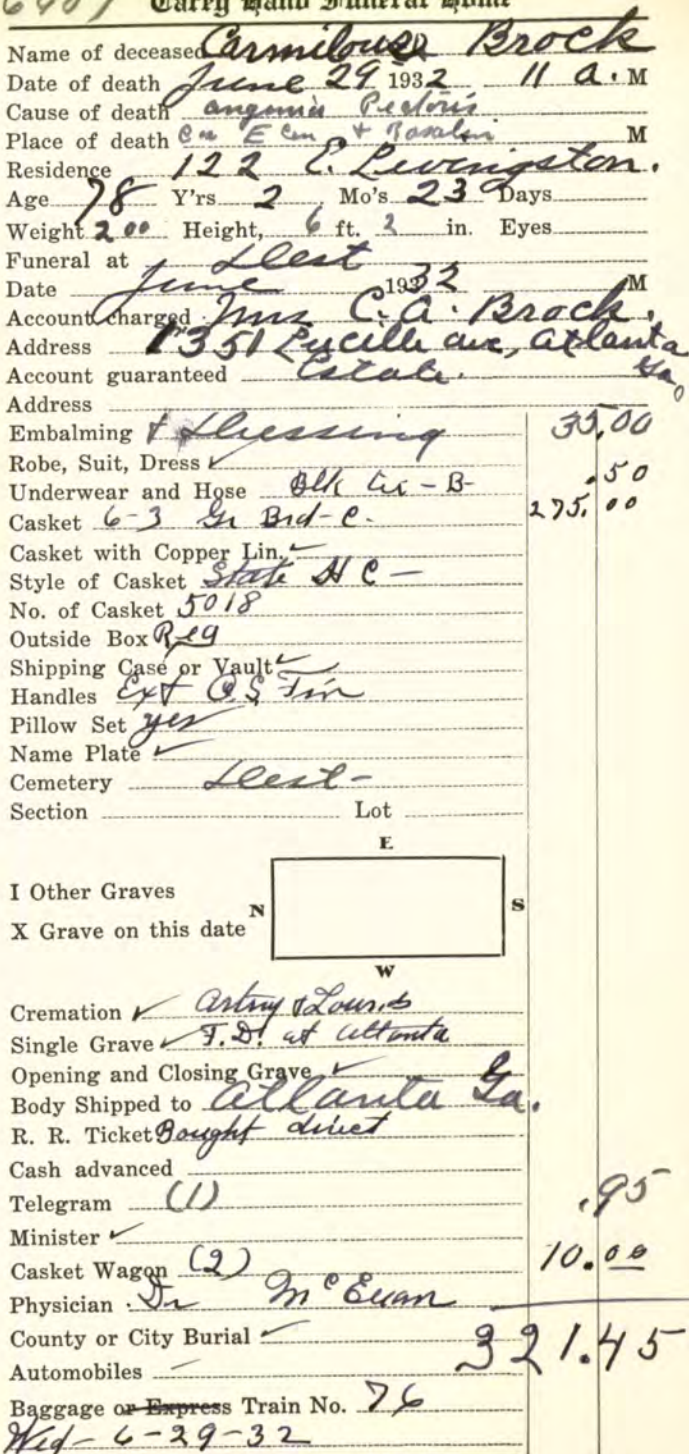 Carey Hand Funeral Home
Name of deceased Brock
Date of death June 29 1932 11 a. M
Cause of death Pectoris
Place of death M
Residence 122 E. Livingston.
Age 78 Y'rs 2 Mo's 23 Days
Weight 200 Height, 6 ft. 2 in. Eyes
Funeral at Dest
Date June 1932 M
Account charged Mrs C. A. Brock.
Address 1351 Lucille ave, Atlanta Ga
Account guaranteed Estate.
Address
Embalming & Dressing 35.00
Robe, Suit, Dress ✓
Underwear and Hose Blk - B- .50
Casket 6-3 Gr Brd-C. 275.00
Casket with Copper Lin. ✓
Style of Casket State H C -
No. of Casket 5018
Outside Box Reg
Shipping Case or Vault ✓
Handles Ext O.S.
Pillow Set yes
Name Plate ✓
Cemetery Dest-
Section Lot
E
I Other Graves
N S
X Grave on this date
W
Cremation ✓
Single Grave ✓ F.D. at Atlanta
Opening and Closing Grave ✓
Body Shipped to Atlanta Ga.
R. R. Ticket Bought direct
Cash advanced
Telegram (1) .95
Minister ✓
Casket Wagon (2) 10.00
Physician Dr McEwan
County or City Burial ✓ 321.45
Automobiles
Baggage or Express Train No. 76
Wed- 6-29-32